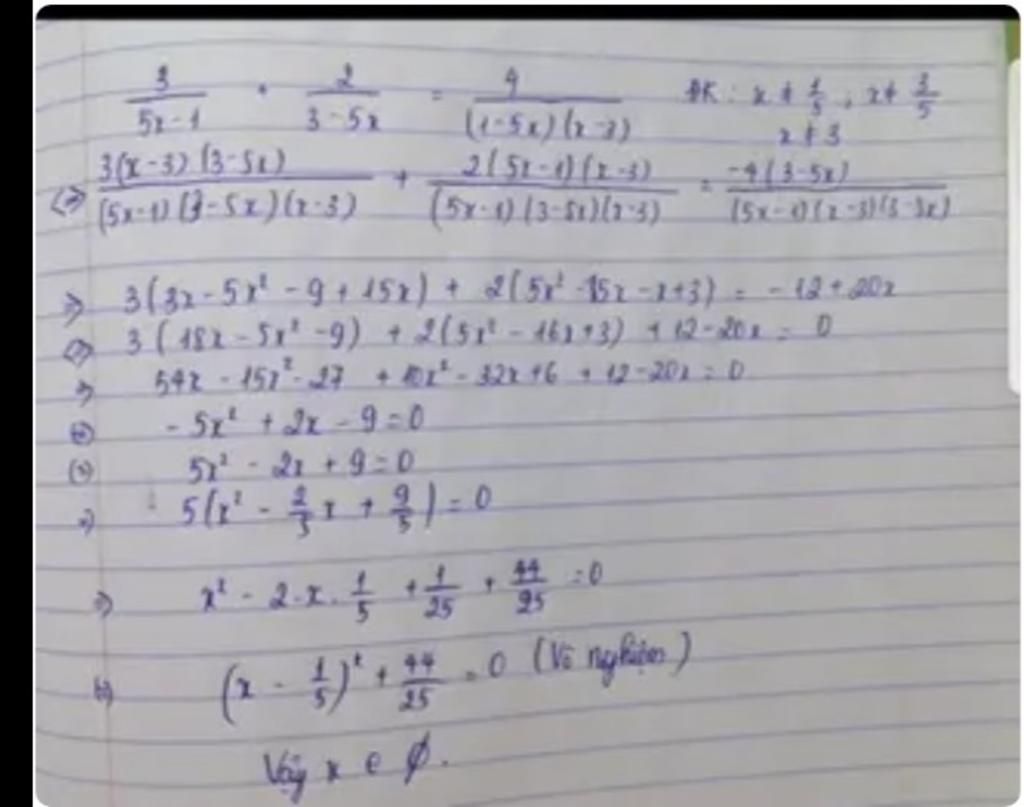 3/(5x-1) + 2/(3-5x) = 4/((1-5x)(x-3)) ĐK: x ≠ 1/5, x ≠ 3/5
x ≠ 3
<=> 3(x-3)(3-5x)/((5x-1)(3-5x)(x-3)) + 2(5x-1)(x-3)/((5x-1)(3-5x)(x-3)) = -4(3-5x)/((5x-1)(x-3)(3-5x))
=> 3(3x - 5x² - 9 + 15x) + 2(5x² - 15x - x + 3) = -12 + 20x
<=> 3(18x - 5x² - 9) + 2(5x² - 16x + 3) + 12 - 20x = 0
<=> 54x - 15x² - 27 + 10x² - 32x + 6 + 12 - 20x = 0
<=> - 5x² + 2x - 9 = 0
<=> 5x² - 2x + 9 = 0
<=> 5(x² - 2/5 x + 9/5) = 0
<=> x² - 2.x.1/5 + 1/25 + 44/25 = 0
<=> (x - 1/5)² + 44/25 = 0 (Vô nghiệm)
Vậy x ∈ ∅.